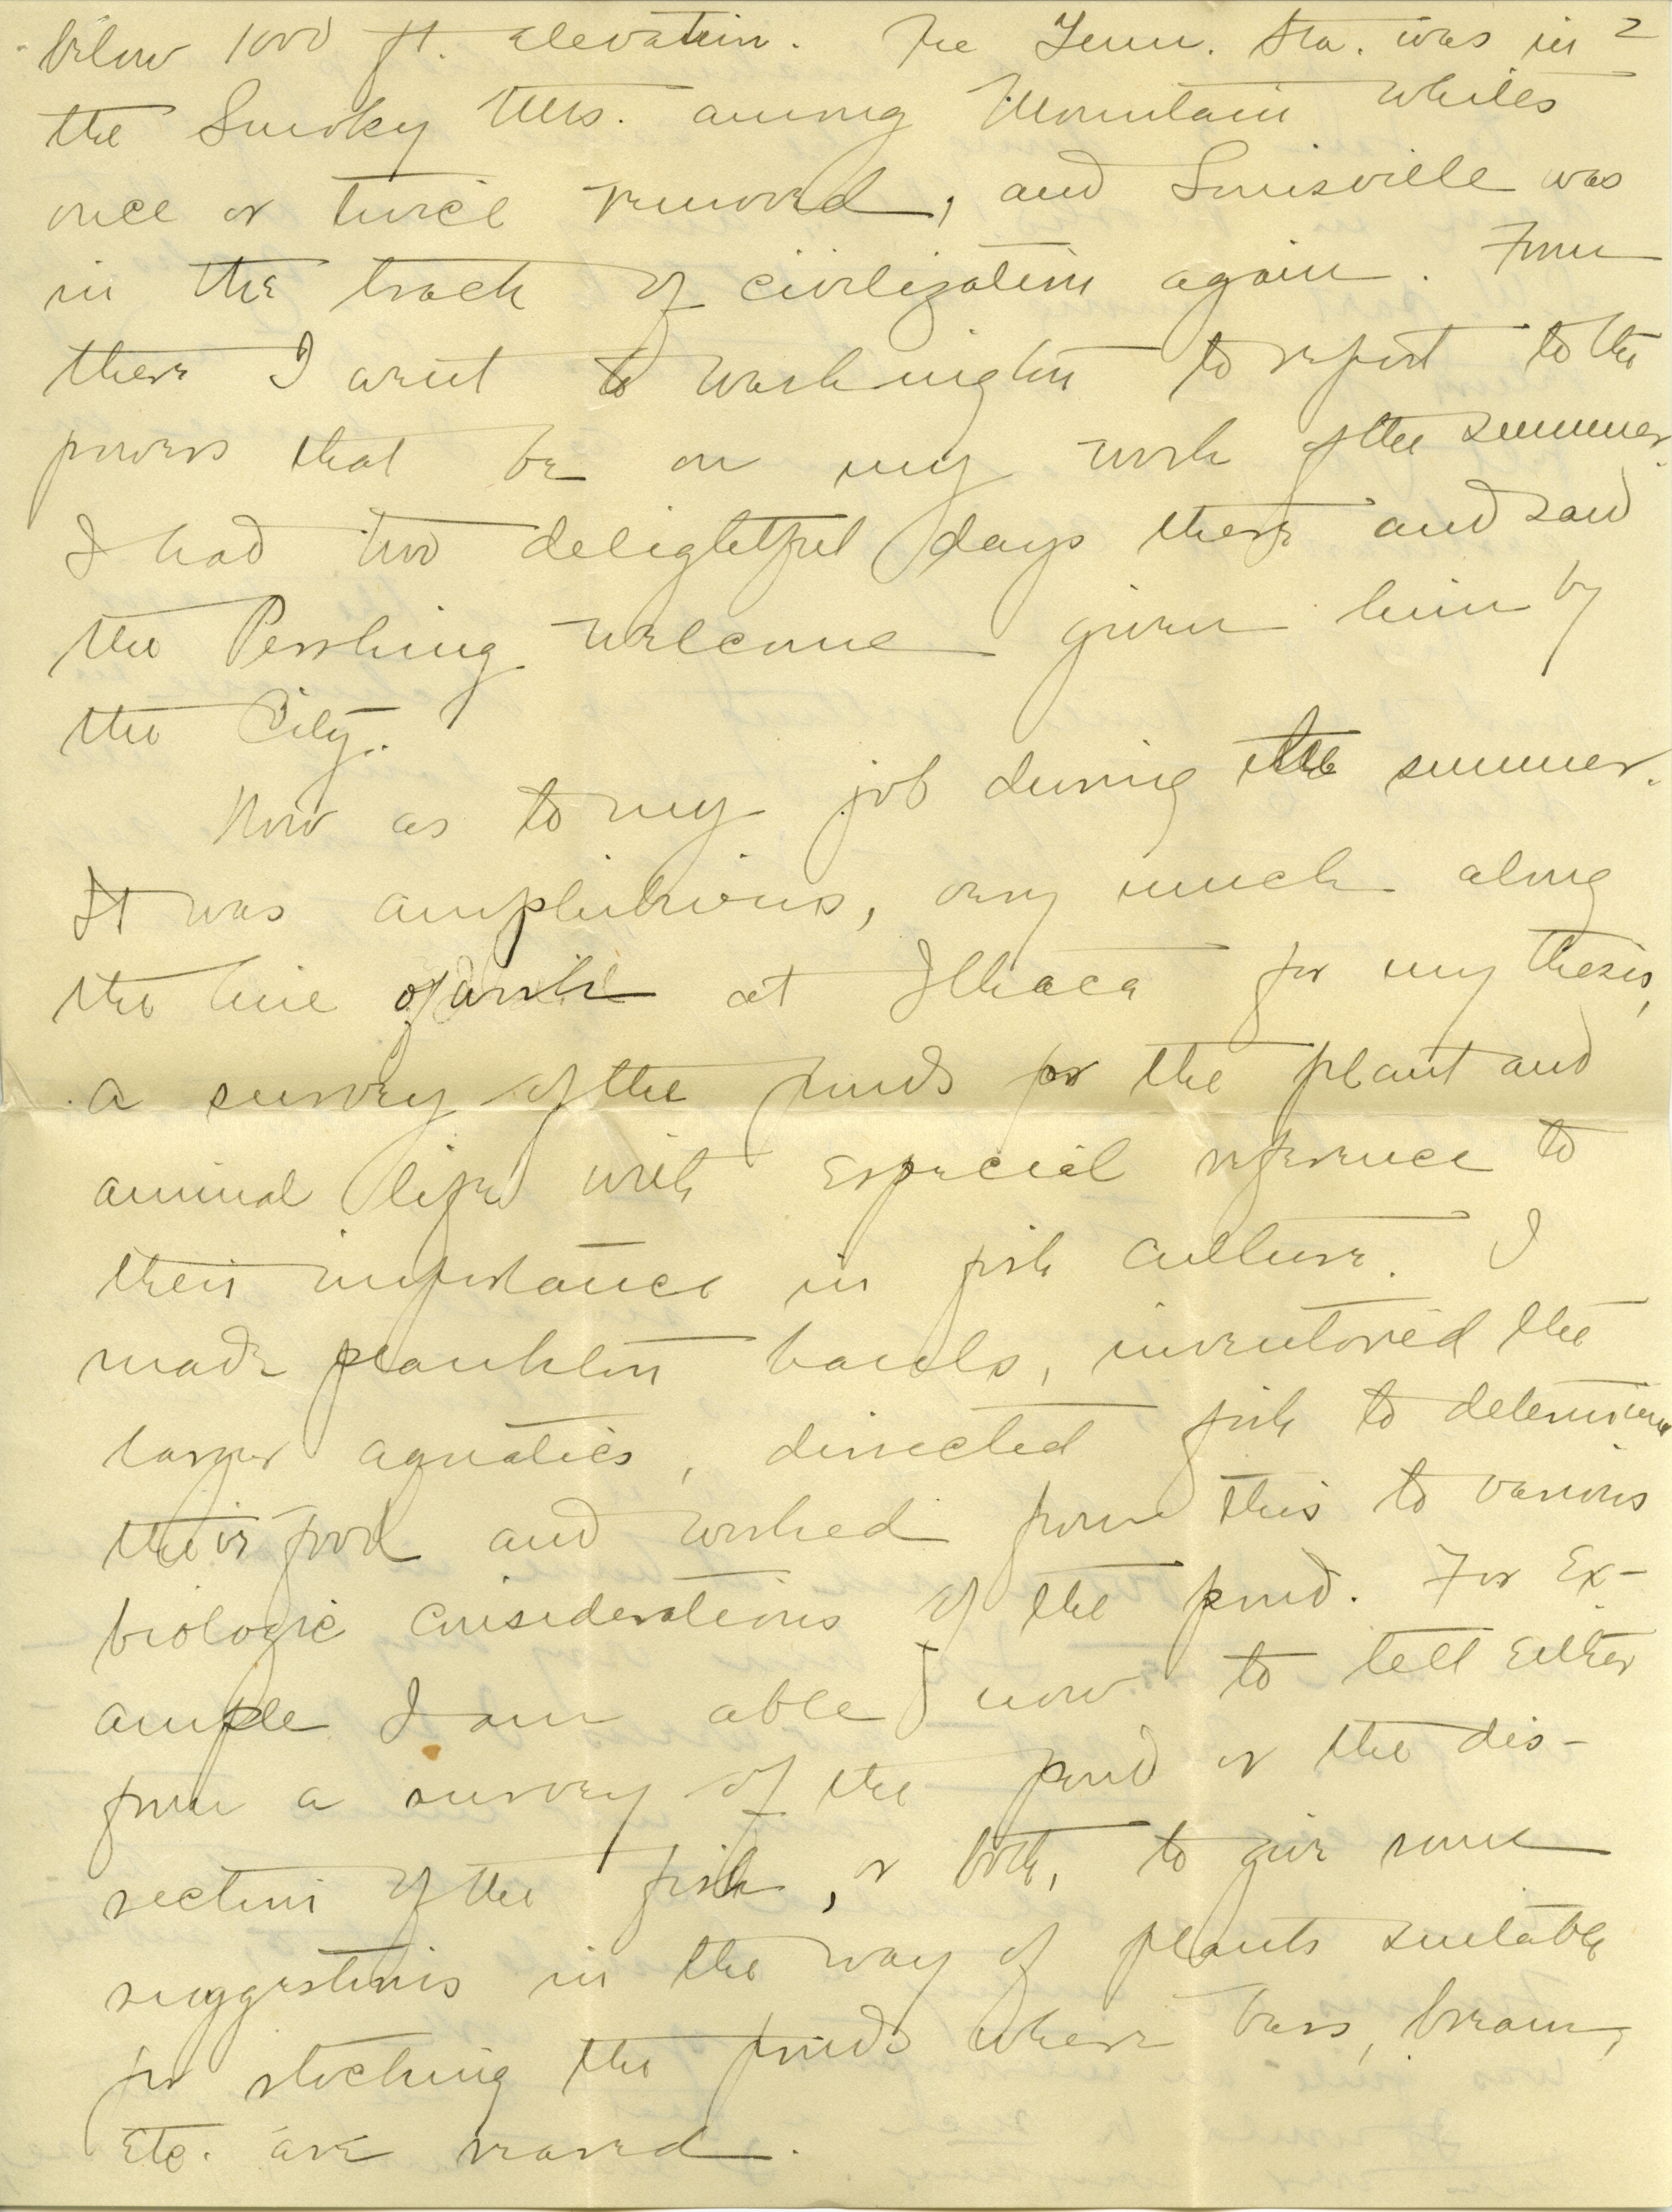 below 1000 ft. elevation. The Tenn. Sta. was in 2
the Smoky Mts. among Mountain Whites
once or twice removed, and Louisville was
in the track of civilization again. From
there I went to Washington to report to the
powers that be on my work of the summer.
I had two delightful days there and saw
the Pershing welcome given him by
the City.
Now as to my job during the summer.
It was amphibious, very much along
the line of work at Ithaca for my thesis,
a survey of the ponds for the plant and
animal life with especial reference to
their importance in fish culture. I
made plankton hauls, inventoried the
larger aquatics, dissected fish to determine
their food and worked from this to various
biologic considerations of the pond. For Ex-
ample I am able now to tell either
from a survey of the pond or the dis-
section of the fish, or both, to give some
suggestions in the way of plants suitable
for stocking the ponds where bass, bream,
Etc. are reared.